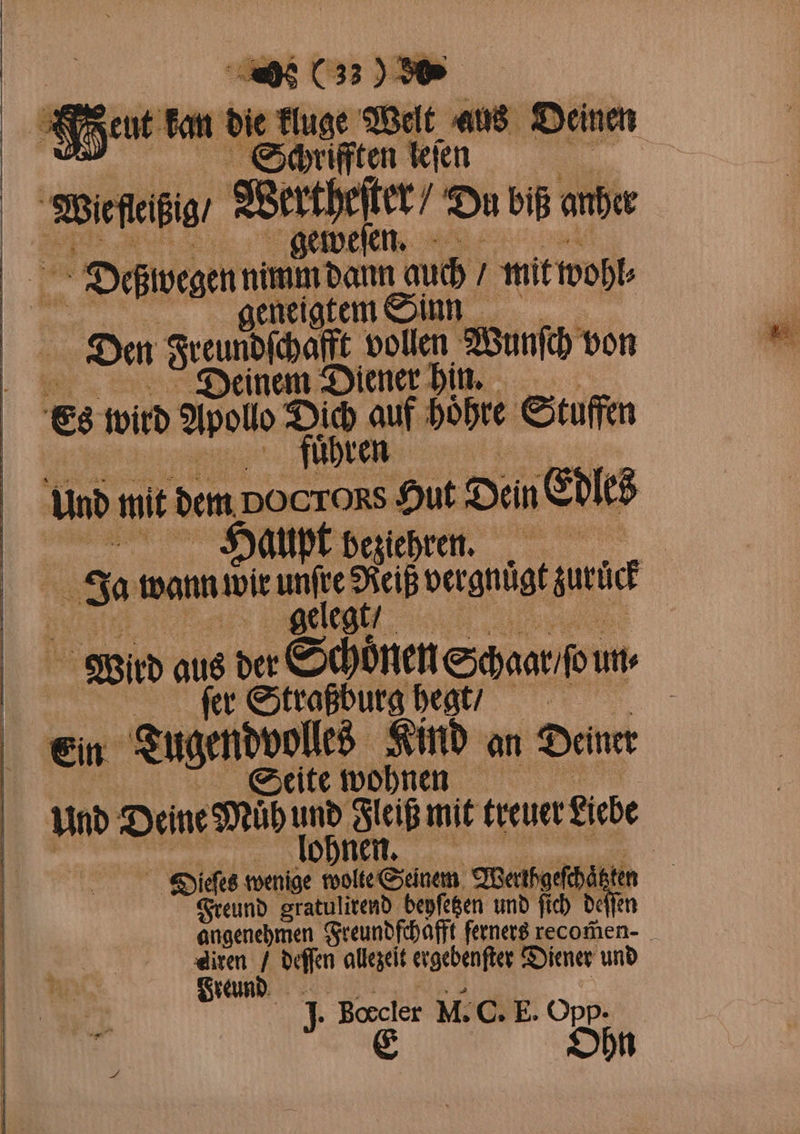 (33)
Heut kan die kluge Welt aus Deinen
Schrifften leſen
Wiefleißig/ Wertheſter/ Du biß anher
geweſen.
Deßwegen nimm dann auch / mit wohl⸗
geneigtem Sinn
Den Freundſchafft vollen Wunſch von
Deinem Diener hin.
Es wird Apollo Dich auf hoͤhre Stuffen
fuͤhren
Und mit dem DOCTORS Hut Dein Edles
Haupt beziehren.
Ja wann wir unſre Reiß vergnuͤgt zuruͤck
gelegt/
Wird aus der Schoͤnen Schaar/ſo un⸗
ſer Straßburg hegt/
Ein Tugendvolles Kind an Deiner
Seite wohnen
Und Deine Muͤh und Fleiß mit treuer Liebe
lohnen.
Dieſes wenige wolte Seinem Werthgeſchaͤtzten
Freund gratulirend beyſetzen und ſich deſſen
angenehmen Freundſchafft ferners recom̃en-
diren / deſſen allezeit ergebenſter Diener und
Freund
J. Bœcler M. C. E. Opp.
E Ohn